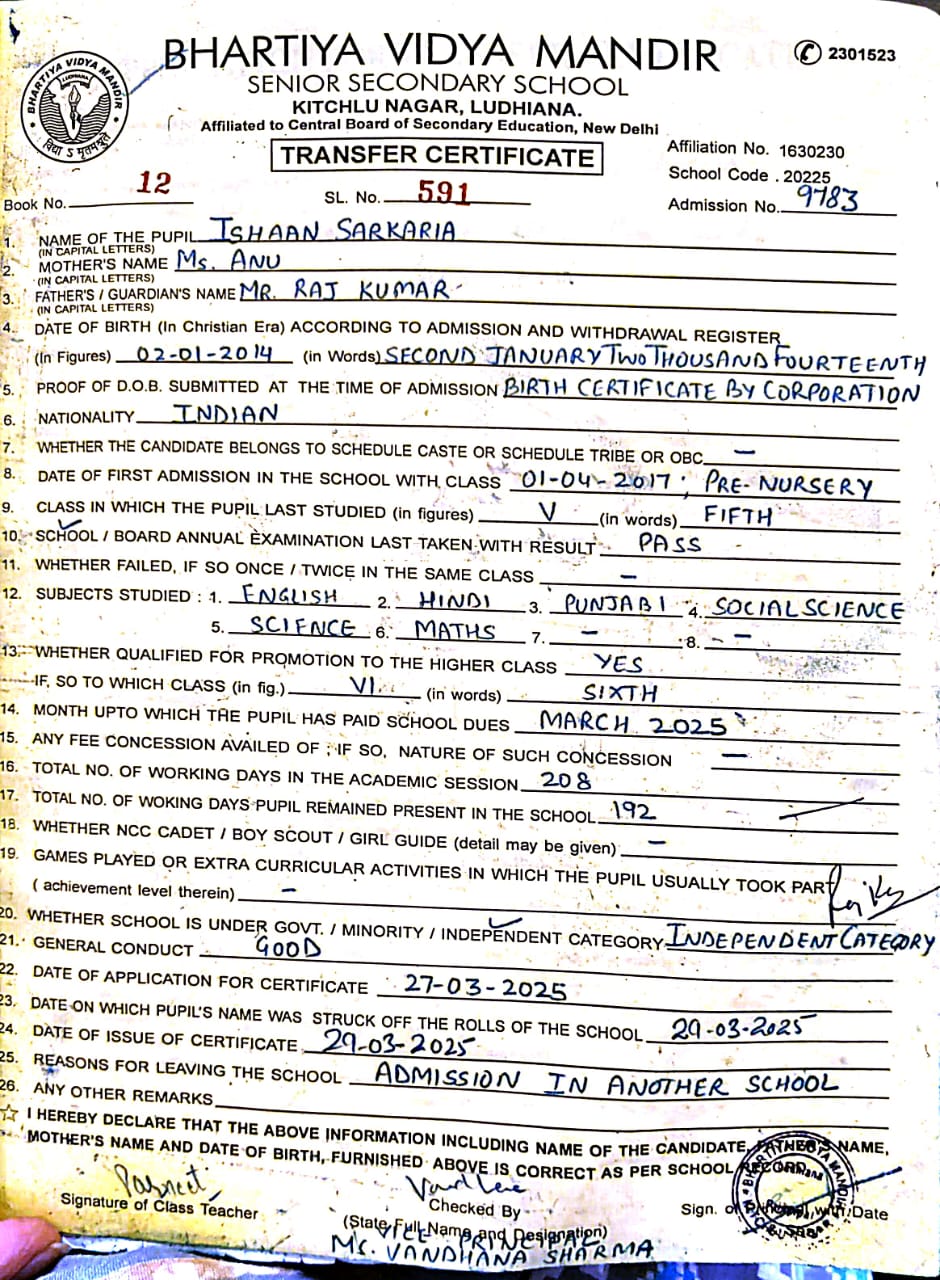 BHARTIYA VIDYA MANDIR
2301523
SENIOR SECONDARY SCHOOL
KITCHLU NAGAR, LUDHIANA.
Affiliated to Central Board of Secondary Education, New Delhi
BHARTIYA VIDYA MANDIR
LUDHIANA
TRANSFER CERTIFICATE
Affiliation No. 1630230
School Code . 20225
Book No. 12 SL. No. 591 Admission No. 9783
1. NAME OF THE PUPIL ISHAAN SARKARIA
(IN CAPITAL LETTERS)
2. MOTHER'S NAME Ms. ANU
(IN CAPITAL LETTERS)
3. FATHER'S / GUARDIAN'S NAME MR. RAJ KUMAR
(IN CAPITAL LETTERS)
4. DATE OF BIRTH (In Christian Era) ACCORDING TO ADMISSION AND WITHDRAWAL REGISTER
(In Figures) 02-01-2014 (in Words) SECOND JANUARY TWO THOUSAND FOURTEENTH
5. PROOF OF D.O.B. SUBMITTED AT THE TIME OF ADMISSION BIRTH CERTIFICATE BY CORPORATION
6. NATIONALITY INDIAN
7. WHETHER THE CANDIDATE BELONGS TO SCHEDULE CASTE OR SCHEDULE TRIBE OR OBC —
8. DATE OF FIRST ADMISSION IN THE SCHOOL WITH CLASS 01-04-2017, PRE-NURSERY
9. CLASS IN WHICH THE PUPIL LAST STUDIED (in figures) V (in words) FIFTH
10. SCHOOL / BOARD ANNUAL EXAMINATION LAST TAKEN WITH RESULT PASS
11. WHETHER FAILED, IF SO ONCE / TWICE IN THE SAME CLASS —
12. SUBJECTS STUDIED : 1. ENGLISH 2. HINDI 3. PUNJABI 4. SOCIAL SCIENCE
5. SCIENCE 6. MATHS 7. — 8. —
13. WHETHER QUALIFIED FOR PROMOTION TO THE HIGHER CLASS YES
IF, SO TO WHICH CLASS (in fig.) VI (in words) SIXTH
14. MONTH UPTO WHICH THE PUPIL HAS PAID SCHOOL DUES MARCH 2025
15. ANY FEE CONCESSION AVAILED OF ; IF SO, NATURE OF SUCH CONCESSION —
16. TOTAL NO. OF WORKING DAYS IN THE ACADEMIC SESSION 208
17. TOTAL NO. OF WOKING DAYS PUPIL REMAINED PRESENT IN THE SCHOOL 192
18. WHETHER NCC CADET / BOY SCOUT / GIRL GUIDE (detail may be given) —
19. GAMES PLAYED OR EXTRA CURRICULAR ACTIVITIES IN WHICH THE PUPIL USUALLY TOOK PART
( achievement level therein) —
20. WHETHER SCHOOL IS UNDER GOVT. / MINORITY / INDEPENDENT CATEGORY INDEPENDENT CATEGORY
21. GENERAL CONDUCT GOOD
22. DATE OF APPLICATION FOR CERTIFICATE 27-03-2025
23. DATE ON WHICH PUPIL'S NAME WAS STRUCK OFF THE ROLLS OF THE SCHOOL 29-03-2025
24. DATE OF ISSUE OF CERTIFICATE 29-03-2025
25. REASONS FOR LEAVING THE SCHOOL ADMISSION IN ANOTHER SCHOOL
26. ANY OTHER REMARKS
☆ I HEREBY DECLARE THAT THE ABOVE INFORMATION INCLUDING NAME OF THE CANDIDATE, FATHER'S NAME,
MOTHER'S NAME AND DATE OF BIRTH, FURNISHED ABOVE IS CORRECT AS PER SCHOOL RECORD.
Signature of Class Teacher
Checked By
Sign. of Principal with Date
(State Full Name and Designation)
VICE PRINCIPAL
Ms. VANDHANA SHARMA